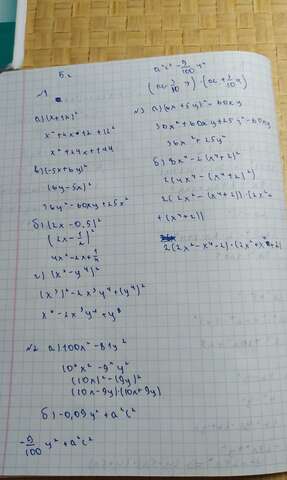 Б2
№1
а) (x+12)²
x²+24x+12²
x²+24x+144
(-5x+6y)²
(6y-5x)²
36y²-60xy+25x²
б) (2x-0,5)²
(2x-1/2)²
4x²-2x+1/4
г) (x³-y⁴)²
(x³)²-2x³y⁴+(y⁴)²
x⁶-2x³y⁴+y⁸
№2 а) 100x²-81y²
10²x²-9²y²
(10x)²-(9y)²
(10x-9y)·(10x+9y)
б) -0,09y²+a²c²
-9/100 y²+a²c²
a²c²-9/100 y²
№3 а) (6x+5y)²-60xy
36x²+60xy+25y²-60xy
36x²+25y²
б) 8x⁴-2(x⁴+2)²
2(4x⁴-(x⁴+2)²)
2(2x²-(x⁴+2))·(2x²+
+(x⁴+2))
2(2x²-x⁴-2)·(2x²+x⁴+2)